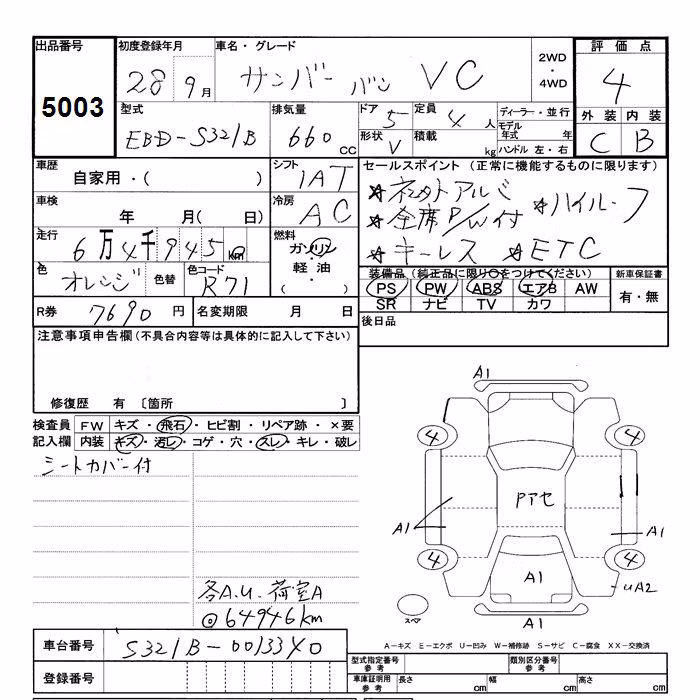 出品番号 初度登録年月 車名・グレード 2WD・4WD 評価点
5003 28 9月 サンバー バン VC 4
型式 排気量 ドア 5 定員 4人 ディーラー・並行 外装 内装
EBD-S321B 660cc 形状 V 積載 kg モデル年式 年 ハンドル 左・右 C B
車歴 シフト セールスポイント (正常に機能するものに限ります)
自家用・( ) IAT
車検 年 月( 日) 冷房 AC
☆全席P/W付 ☆ハイルーフ
走行 6万4千945km 燃料 ガソリン・軽油・( )
☆キーレス ☆ETC
色 オレンジ 色替 色コード R71
装備品 (純正品に限り○をつけてください) 新車保証書
PS PW ABS エアB AW 有・無
SR ナビ TV カワ
R券 7690円 名変期限 月 日 後日品
注意事項申告欄(不具合内容等は具体的に記入して下さい)
修復歴 有 〔箇所 〕
検査員 FW キズ・飛石・ヒビ割・リペア跡・×要
記入欄 内装 キズ・汚レ・コゲ・穴・スレ・キレ・破レ
シートカバー付
A1
4 4
Pアセ
A1 A1
4 4
A1
UA2
スペア
A1
各A.U.荷室A
◎64946km
A-キズ E-エクボ U-凹み W-補修跡 S-サビ C-腐食 XX-交換済
車台番号 S321B-0013340
型式指定番号 参考 類別区分番号 参考
登録番号 車庫証明用 参考 長さ cm 幅 cm 高さ cm